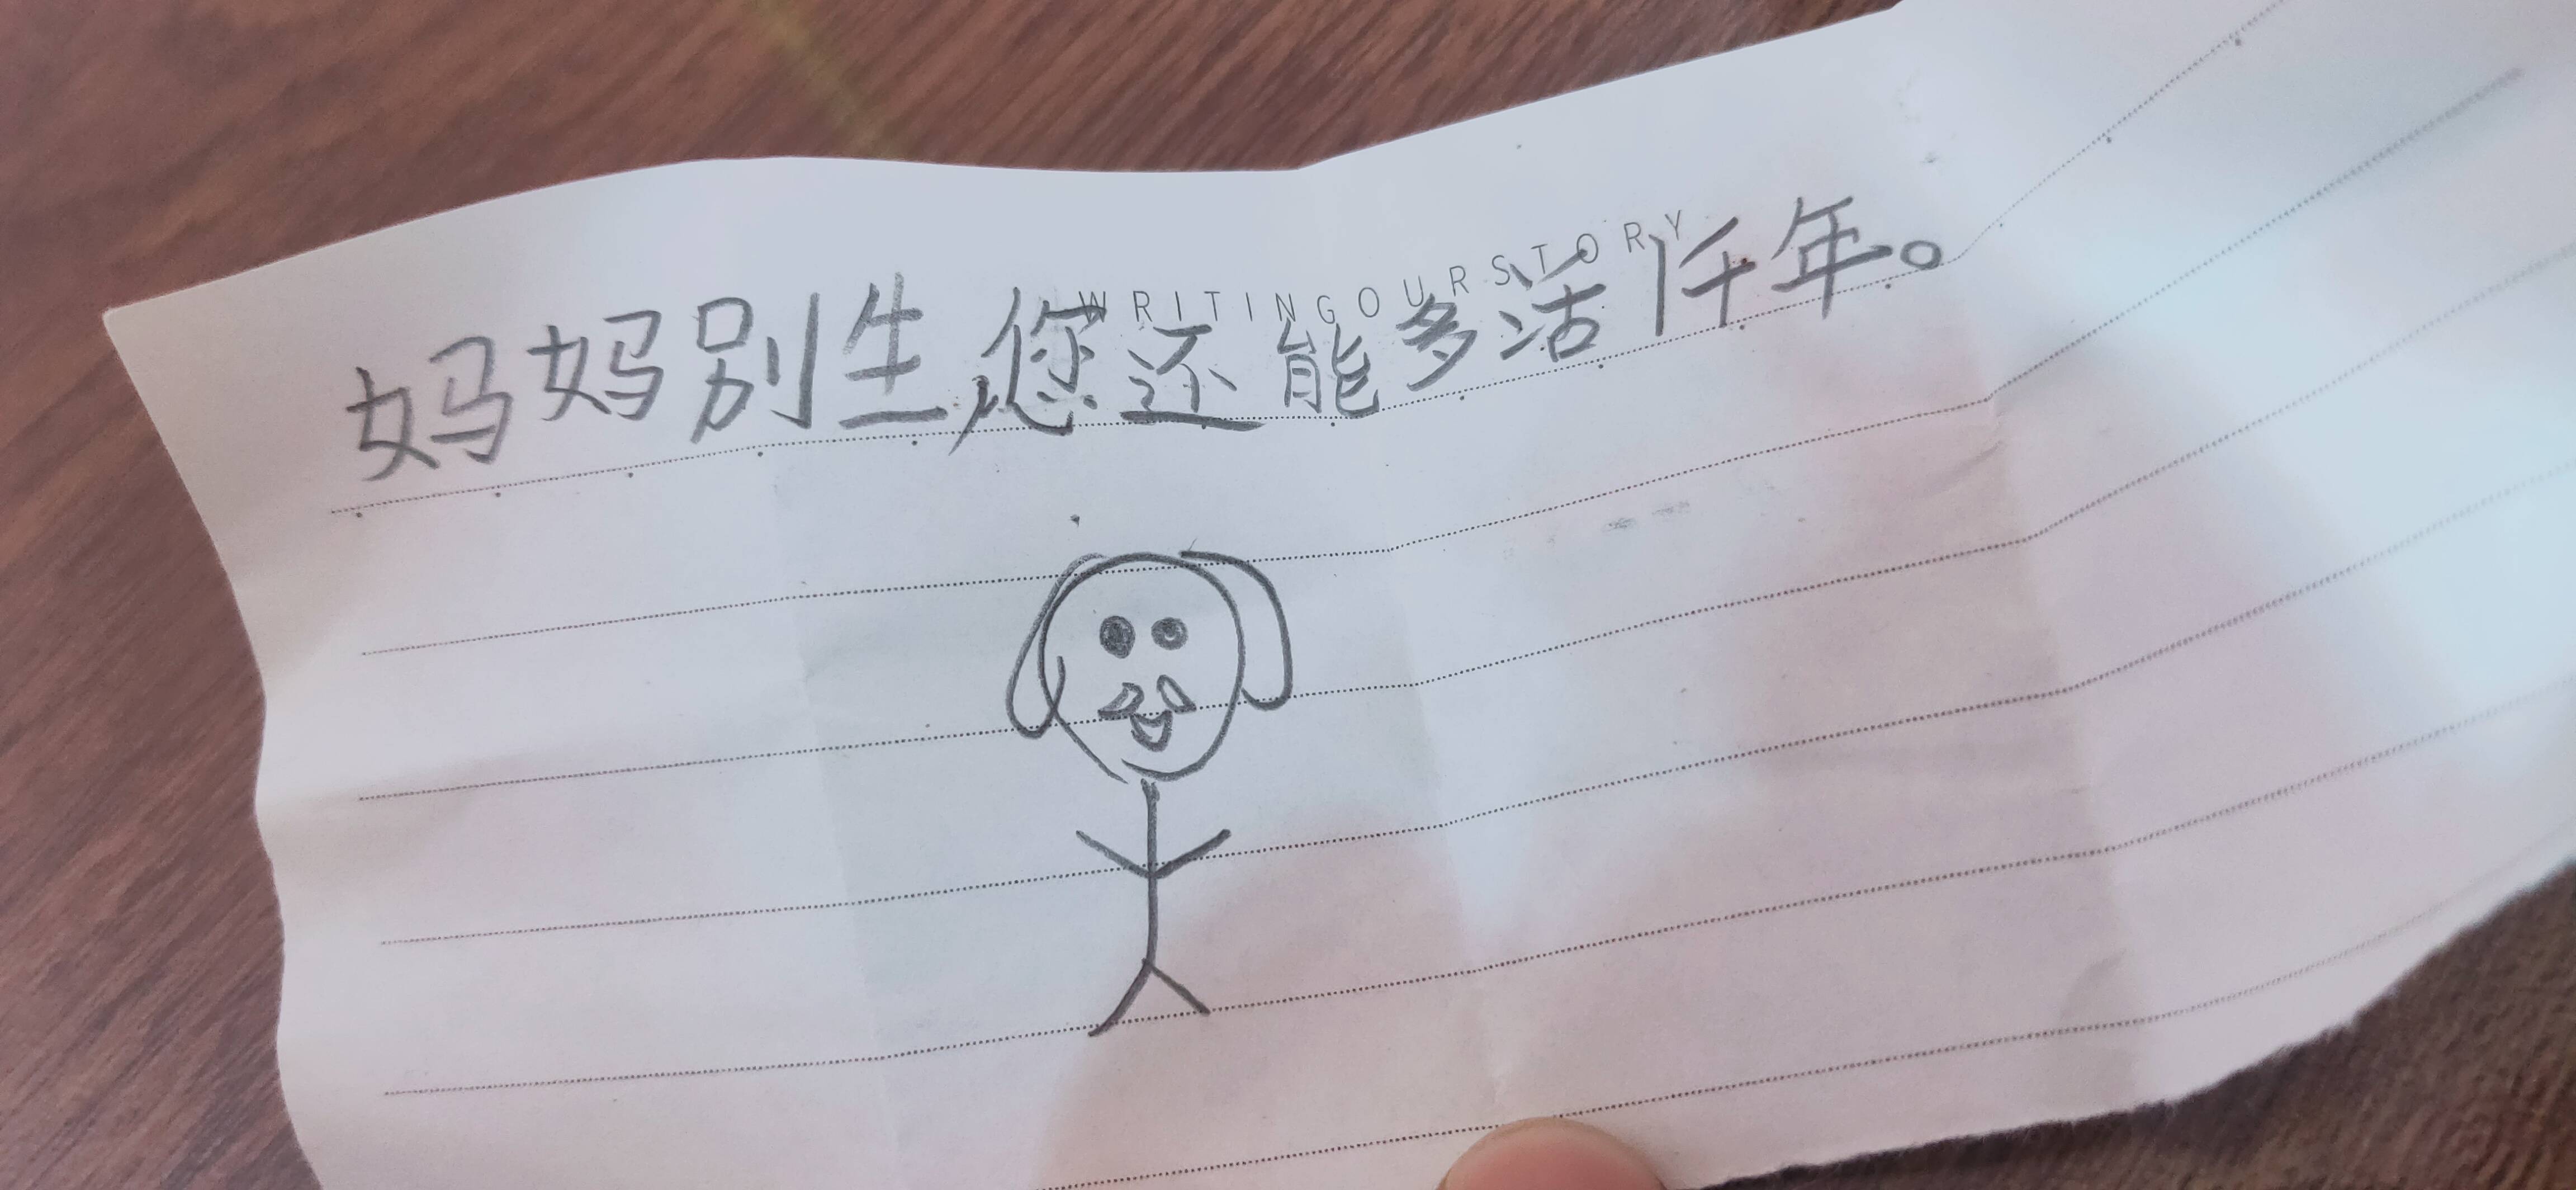 WRITING OUR STORY
妈妈别生,您还能多活1仟年。